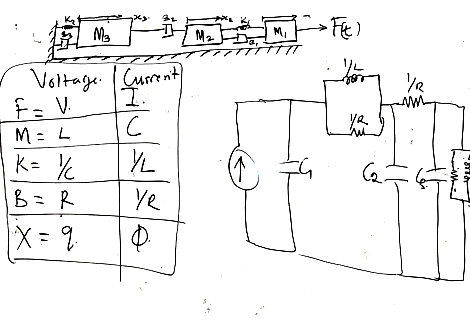 K₂ x₃ B₂ x₂ K₁
M₃ M₂ M₁ F(t)
B₁
Voltage. Current
F = V. I.
M = L C
K = 1/C 1/L
B = R 1/R
X = q ϕ
1/L
1/R
1/R
C₁
C₂
C₃